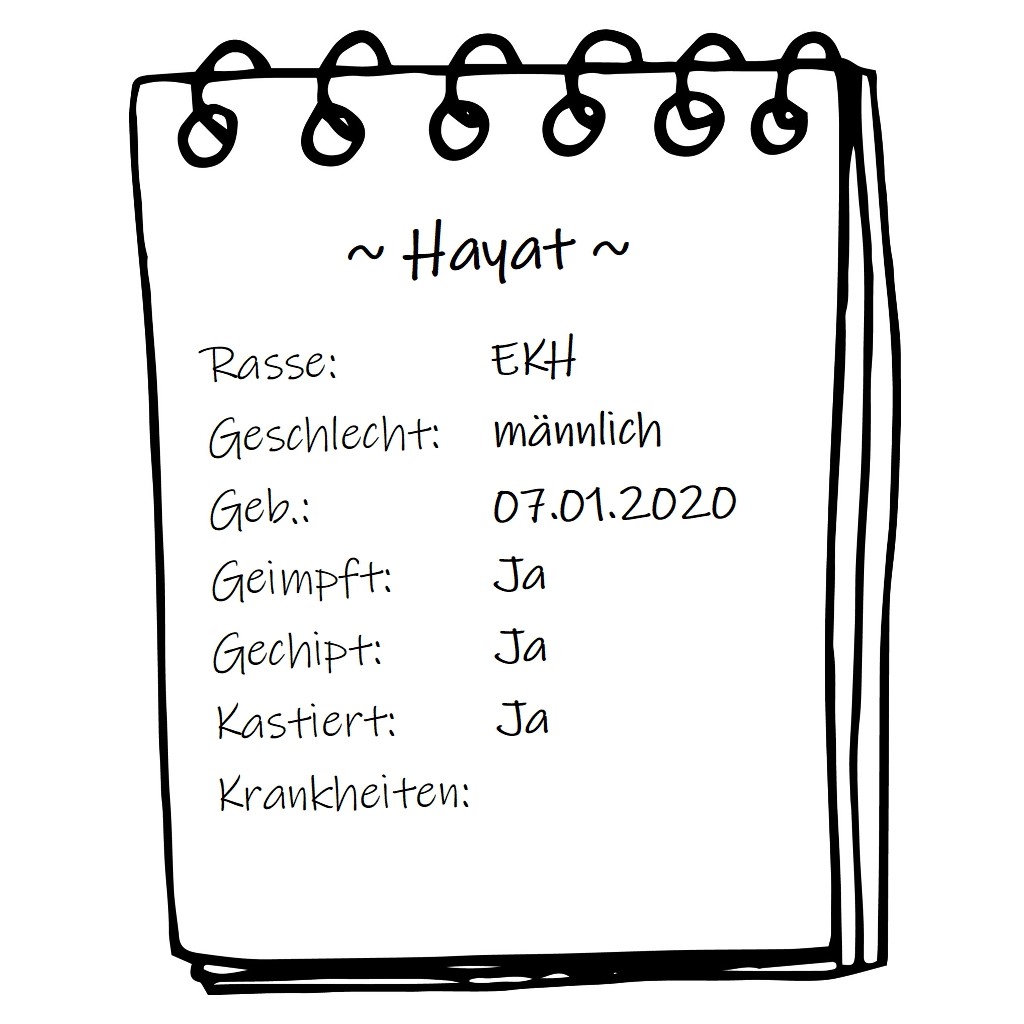 ~ Hayat ~
Rasse: EKH
Geschlecht: männlich
Geb.: 07.01.2020
Geimpft: Ja
Gechipt: Ja
Kastiert: Ja
Krankheiten: